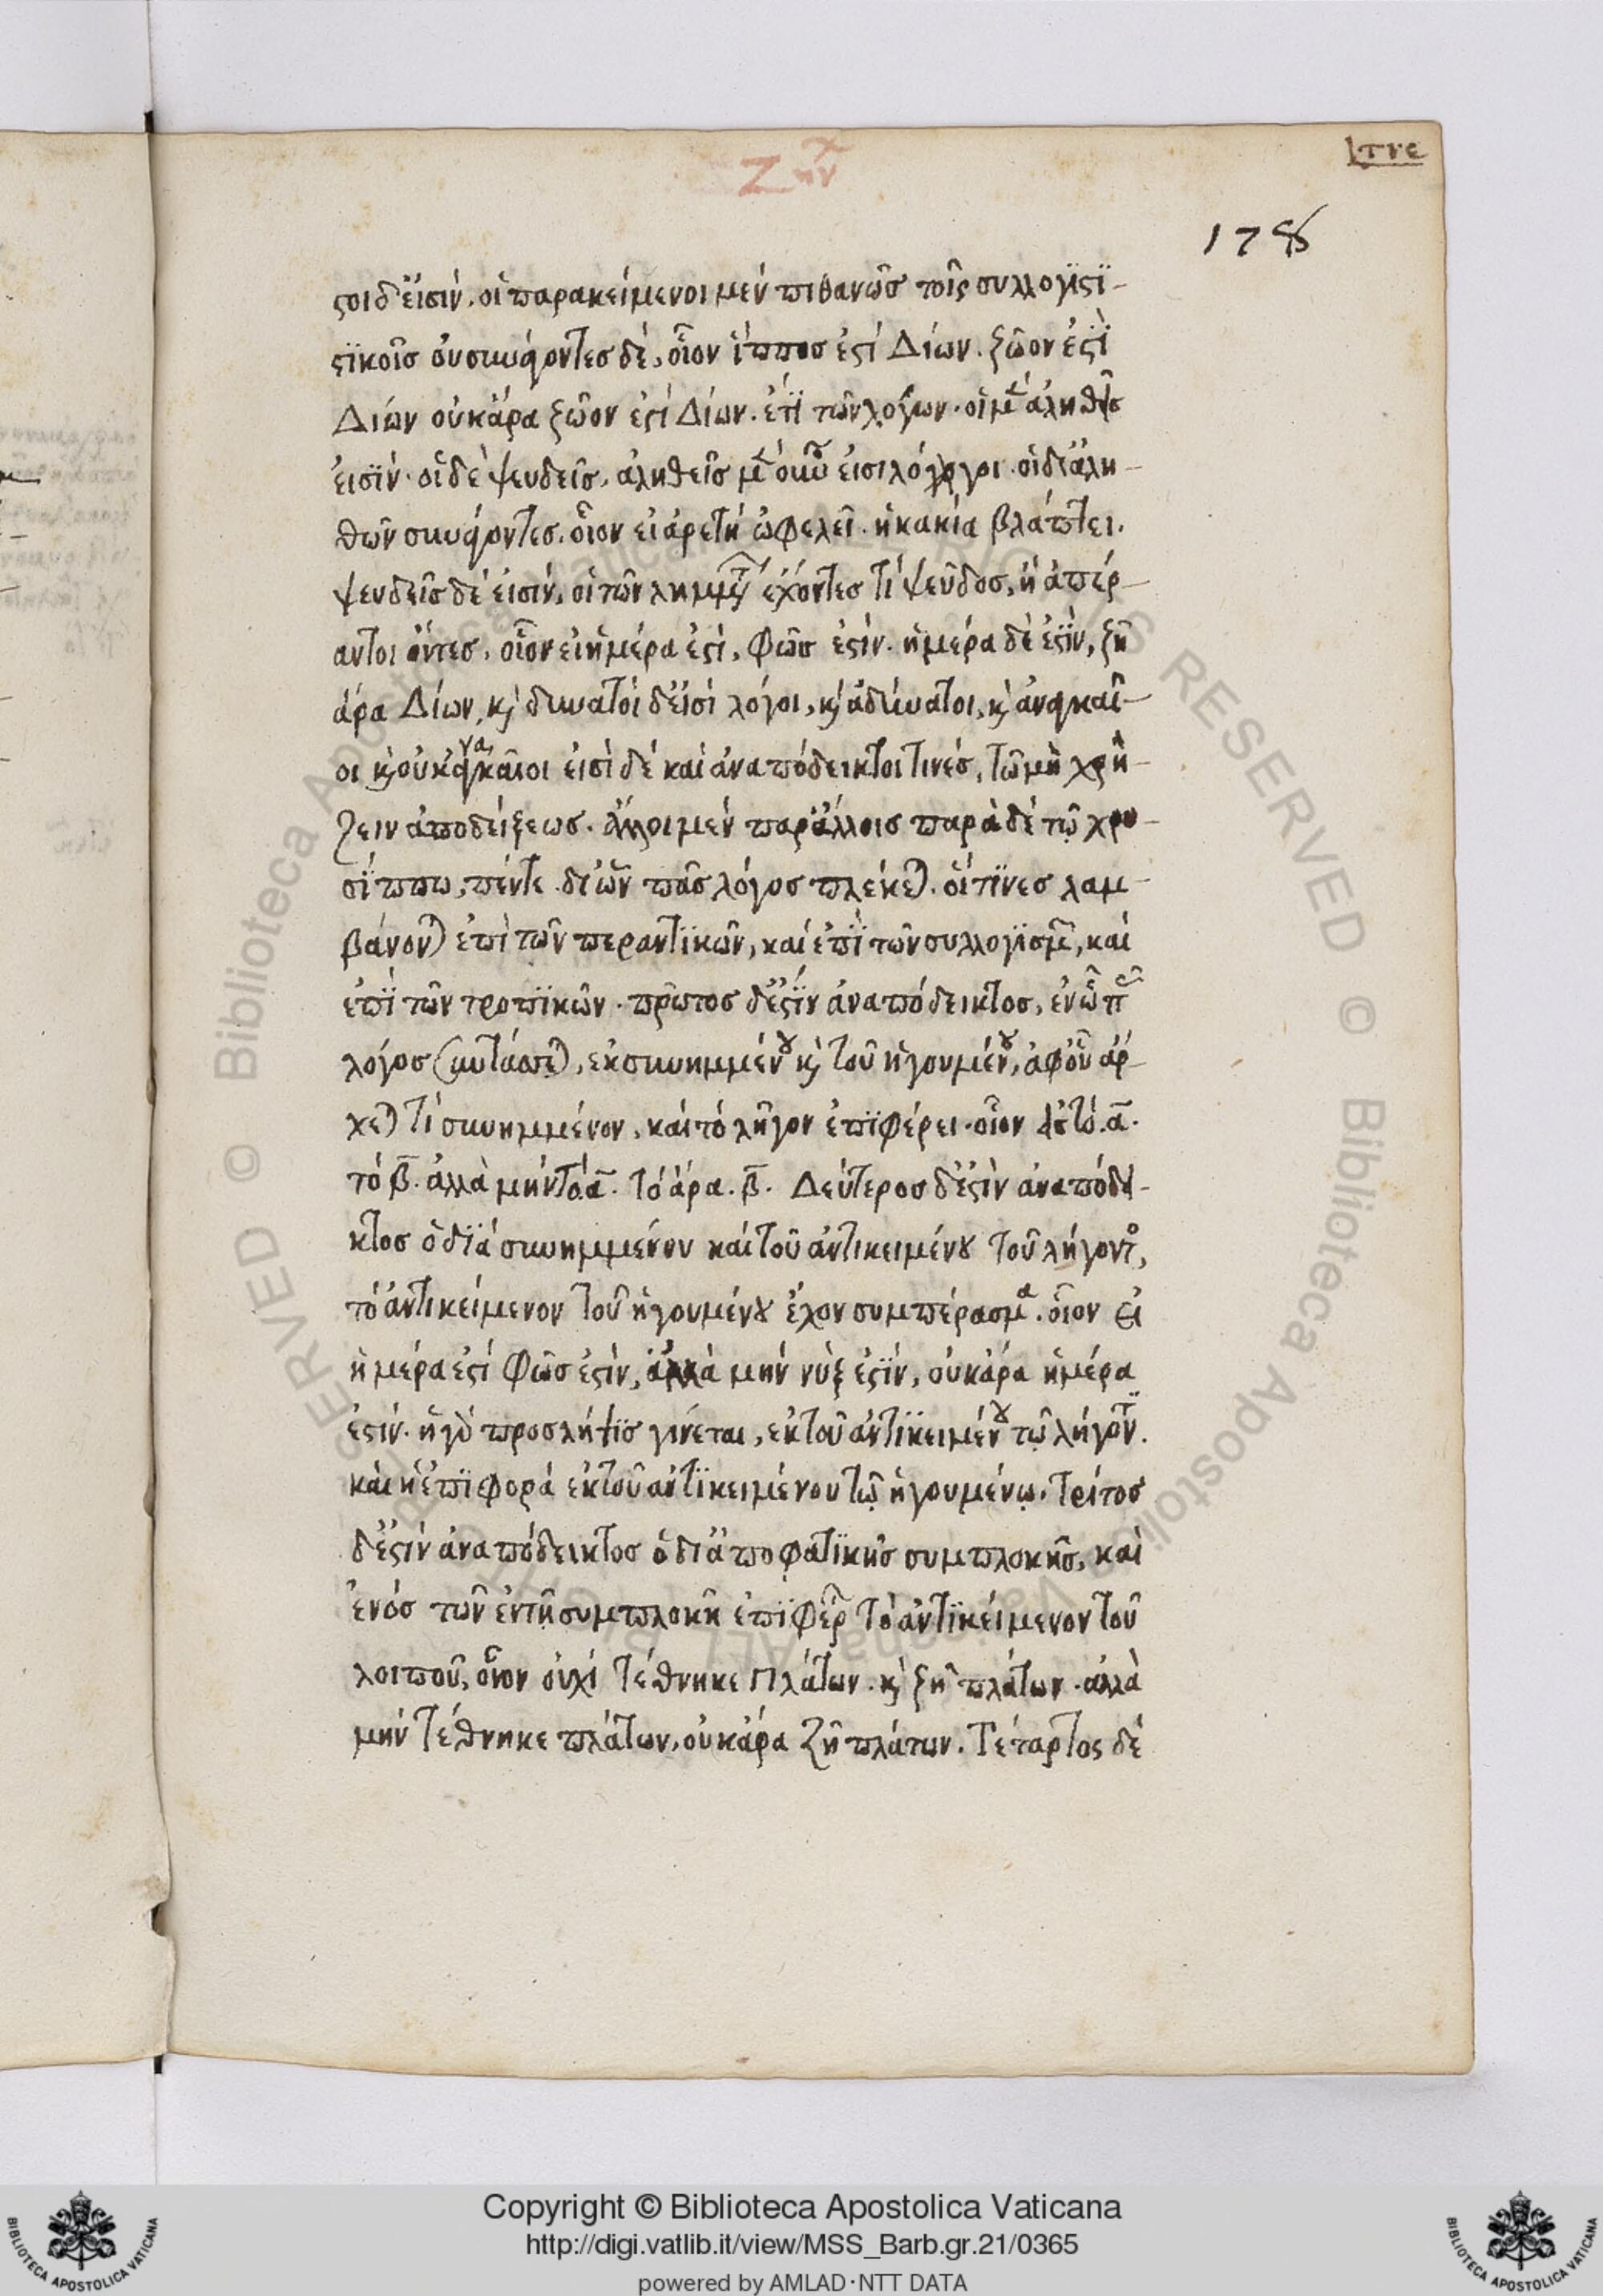 Ζην
τνε
178
στοι δ' εἰσὶν, οἱ παρακείμενοι μὲν πιθανῶς τοῖς συλλογϊστϊ-
στϊκοῖς οὐ συνάγοντες δέ, οἷον ἵππος ἐστὶ Δίων. ζῶον ἐστϊ
Δίων οὐκ ἄρα ζῶον ἐστὶ Δίων. ἔτϊ τῶν λόγων. οἱ μὲν ἀληθεῖς
εἰσϊν. οἱ δὲ ψευδεῖς, ἀληθεῖς μὲν οὖν εἰσι λόγοι. οἱ δι' ἀλη-
θῶν συνάγοντες. οἷον εἰ ἀρετὴ ὠφελεῖ. ἡ κακία βλάπτει.
ψευδεῖς δέ εἰσιν, οἱ τῶν λημμάτων ἔχοντές τι ψεῦδος, ἢ ἀπέρ-
αντοι ὄντες, οἷον εἰ ἡμέρα ἐστὶ, φῶς ἐστίν. ἡμέρα δὲ ἐστϊν, ζῆ
ἄρα Δίων, κὶ δυνατοὶ δ' εἰσὶ λόγοι, κὶ ἀδύνατοι, κὶ ἀναγκαῖ-
οι κὶ οὐκ ἀναγκαῖοι εἰσὶ δὲ καὶ ἀναπόδεικτοι τινές, τῶ μὴ χρή-
ζειν ἀποδείξεως. ἄλλοι μὲν παρ' ἄλλοις παρὰ δὲ τῷ χρυ-
σίππω, πέντε. δι' ὧν πᾶς λόγος πλέκεται. οἵτϊνες λαμ-
βάνονται ἐπὶ τῶν περαντϊκῶν, καὶ ἐπϊ τῶν συλλογϊσμῶν, καὶ
ἐπϊ τῶν τροπϊκῶν. πρῶτος δ' ἐστϊν ἀναπόδεικτος, ἐν ὧ πᾶς
λόγος συντάσσεται, ἐκ συνημμένου κὶ τοῦ ἡγουμένου, ἀφ' οὗ ἄρ-
χεται τὶ συνημμένον, καὶ τὸ λῆγον ἐπϊφέρει. οἷον εἰ τὸ. α.
τὸ β. ἀλλὰ μὴν τὸ α. τὸ ἄρα. β. Δεύτερος δ' ἐστὶν ἀναπόδει-
κτος ὁ δϊὰ συνημμένου καὶ τοῦ ἀντικειμένου τοῦ λήγοντος,
τὸ ἀντικείμενον τοῦ ἡγουμένου ἔχον συμπέρασμα. οἷον εἰ
ἡμέρα ἐστὶ φῶς ἐστίν, ἀλλὰ μὴν νὺξ ἐστϊν, οὐκ ἄρα ἡμέρα
ἐστιν. ἡ γὰρ προσλήψϊς γίνεται, ἐκ τοῦ ἀντϊκειμένου τῷ λήγοντϊ.
καὶ ἡ ἐπϊφορὰ ἐκ τοῦ ἀντϊκειμένου τῷ ἡγουμένῳ. Τρίτος
δ' ἐστὶν ἀναπόδεικτος ὁ δι' ἀποφατϊκῆς συμπλοκῆς, καὶ
ἑνὸς τῶν ἐν τῇ συμπλοκῆ ἐπϊφέρων τὸ ἀντϊκείμενον τοῦ
λοιποῦ, οἷον οὐχὶ τέθνηκε Πλάτων. κὶ ζῆ πλάτων. ἀλλὰ
μὴν τέθνηκε πλάτων, οὐκ ἄρα ζῆ πλάτων. Τέταρτος δέ
Copyright © Biblioteca Apostolica Vaticana
http://digi.vatlib.it/view/MSS_Barb.gr.21/0365
powered by AMLAD·NTT DATA